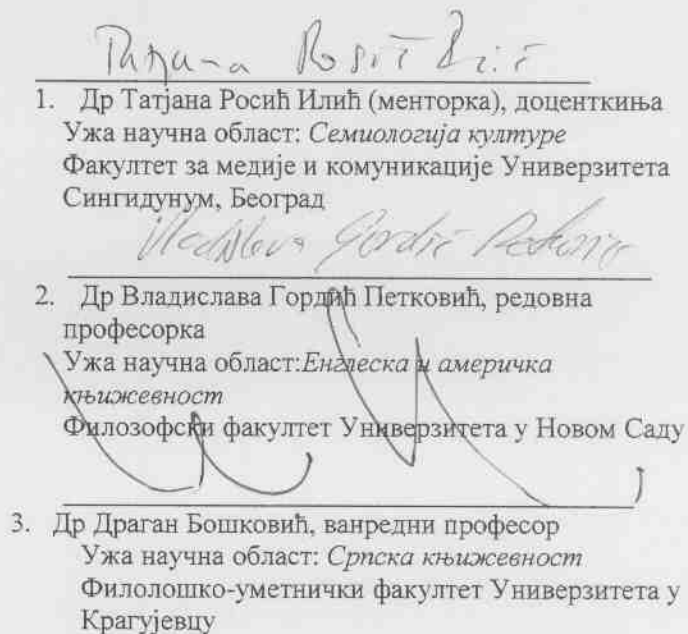 1. Др Татјана Росић Илић (менторка), доценткиња
Ужа научна област: Семиологија културе
Факултет за медије и комуникације Универзитета
Сингидунум, Београд
Vladislava Gordić Petković
2. Др Владислава Гордић Петковић, редовна
професорка
Ужа научна област:Енглеска и америчка
књижевност
Филозофски факултет Универзитета у Новом Саду
3. Др Драган Бошковић, ванредни професор
Ужа научна област: Српска књижевност
Филолошко-уметнички факултет Универзитета у
Крагујевцу